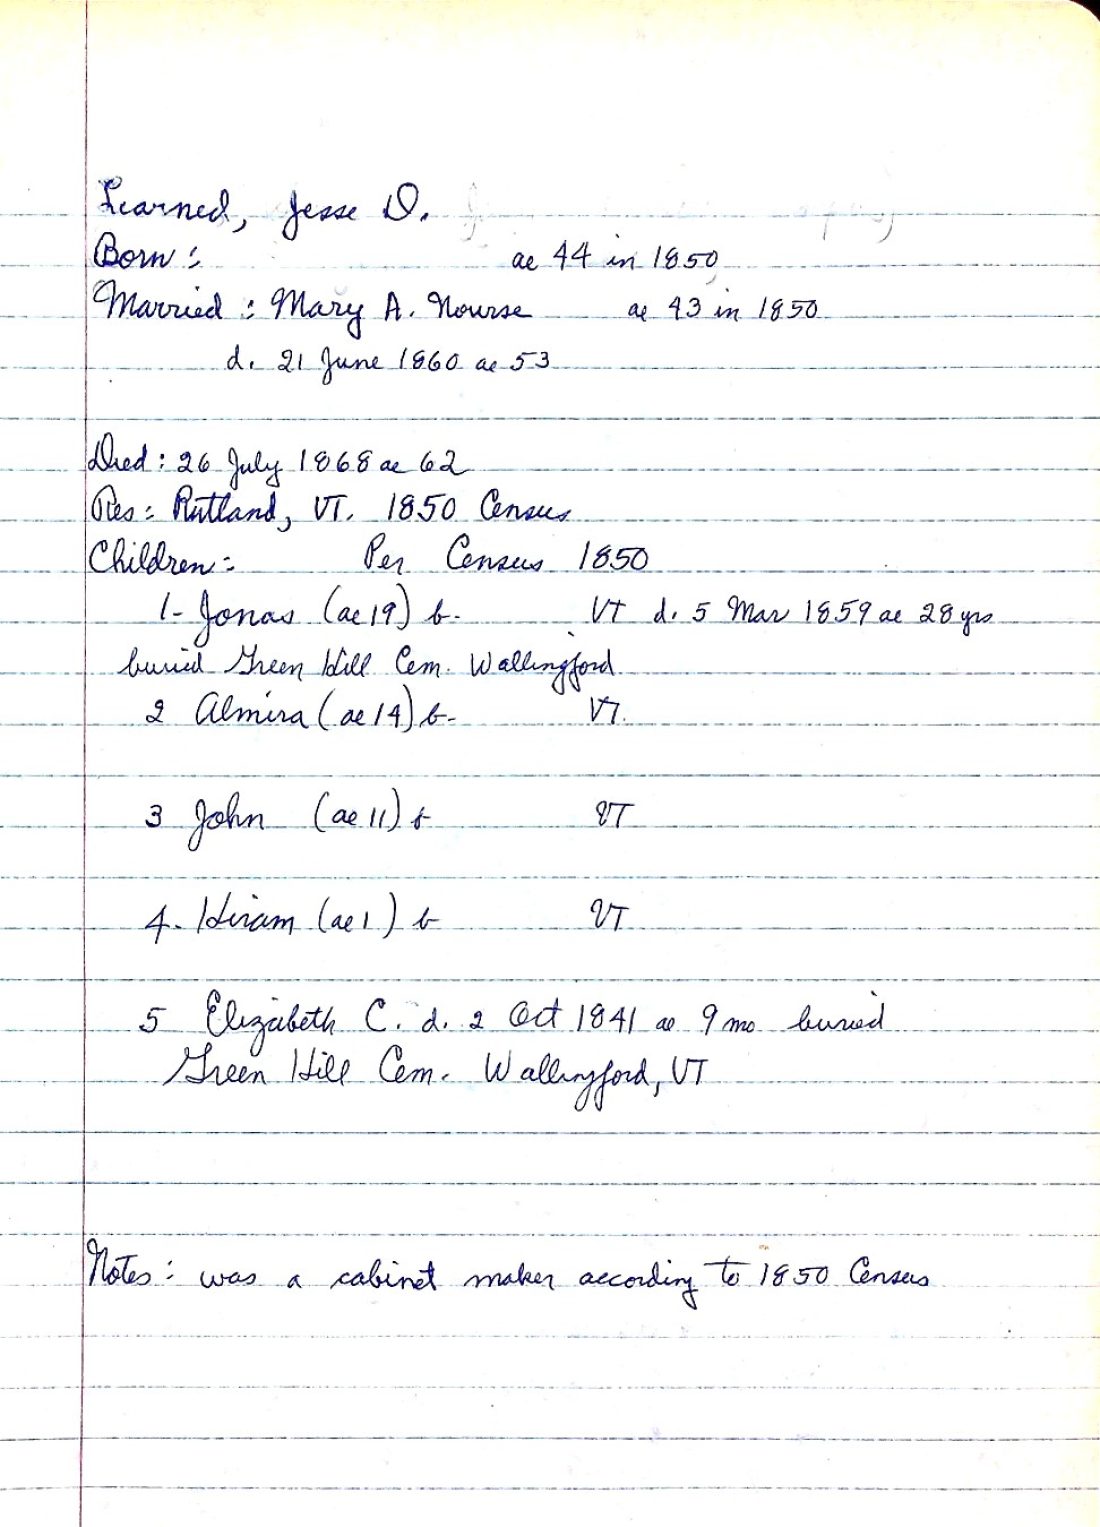 Learned, Jesse D.
Born: ae 44 in 1850
Married: Mary A. Nourse ae 43 in 1850
d. 21 June 1860 ae 53
Died: 26 July 1868 ae 62
Res: Rutland, VT. 1850 Census
Children: Per Census 1850
1- Jonas (ae 19) b- VT d. 5 Mar 1859 ae 28 yrs
buried Green Hill Cem. Wallingford
2 Almira (ae 14) b- VT.
3 John (ae 11) b VT
4. Hiram (ae 1) b VT
5 Elizabeth C. d. 2 Oct 1841 ae 9 mo buried
Green Hill Cem. Wallingford, VT
Notes: was a cabinet maker according to 1850 Census